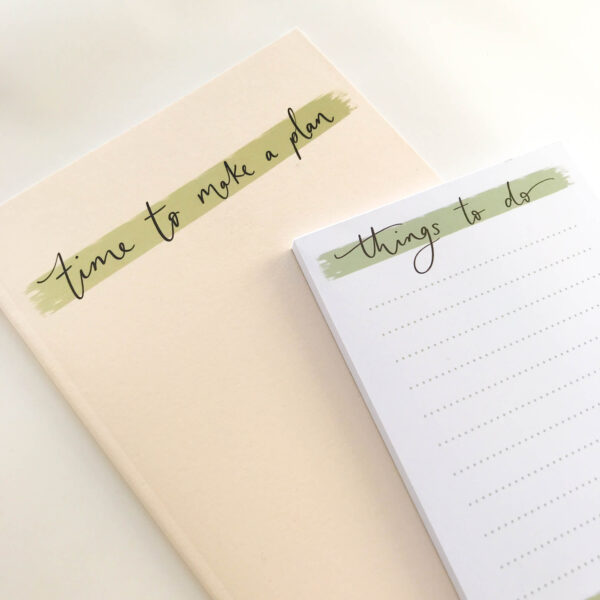 time to make a plan
things to do